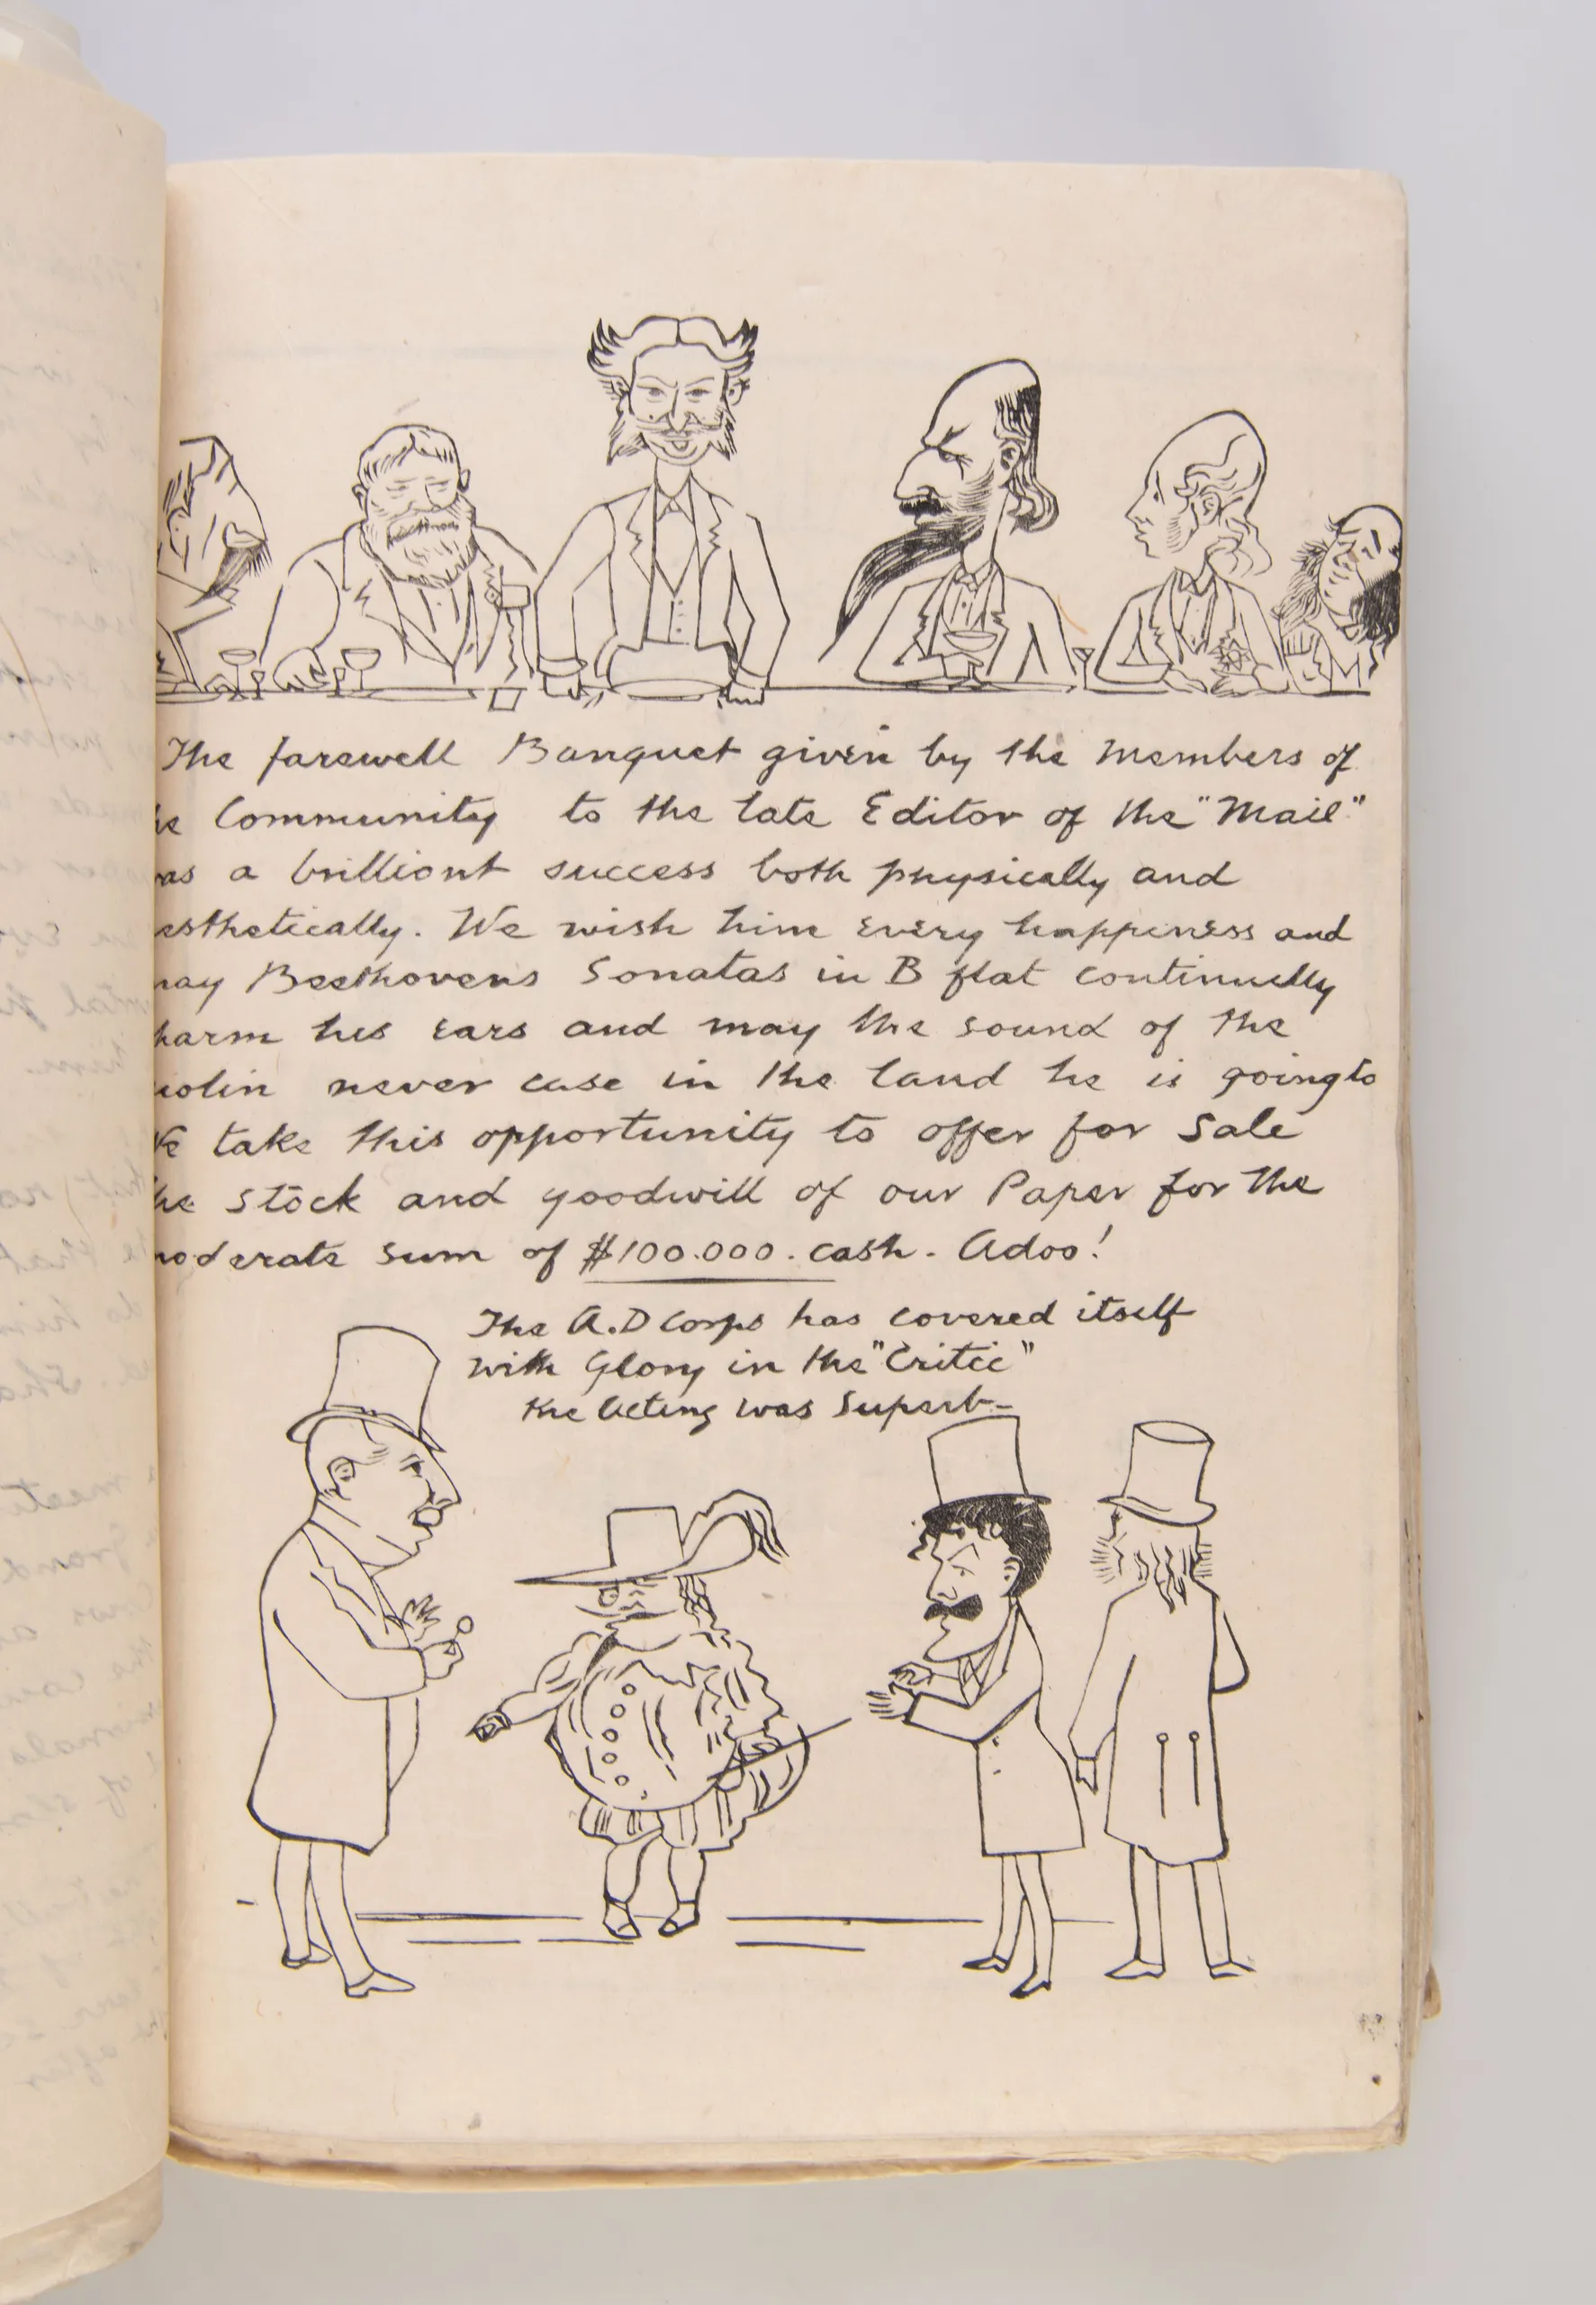 The farewell Banquet given by the Members of
he Community to the late Editor of the "Mail"
as a brilliant success both physically and
esthetically. We wish him every happiness and
may Beethovens Sonatas in B flat continually
harm his ears and may the sound of the
iolin never case in the land he is going to
We take this opportunity to offer for Sale
he Stock and goodwill of our Paper for the
moderate sum of $100.000. cash. Adoo!
The A.D Corps has covered itself
with Glory in the "Critic"
the Acting was Superb-